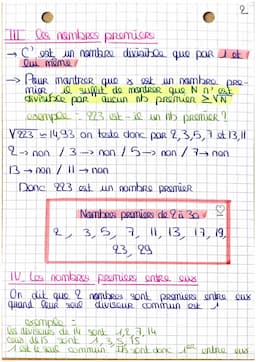 2
III Les nombres premiers
→ C'est un nombre divisible que par 1 et
lui même
→ Pour montrer que x est un nombre pre-
mier, il suffit de montrer que N n'est
divisible par aucun nb premier ≥ √N
exemple = 223 est - il un nb premier ?
√223 ≈ 14,93 on teste donc par 2, 3, 5, 7 et 13, 11
2 → non / 3 → non / 5 → non / 7 → non
13 → non / 11 → non
Donc 223 est un nombre premier
Nombres premiers de 2 à 30
2, 3, 5, 7, 11, 13, 17, 19,
23, 29
IV Les nombres premiers entre eux
On dit que 2 nombres sont premiers entre eux
quand leur seul diviseur commun est 1
exemple =
les diviseurs de 14 sont 1, 2, 7, 14
ceux de 15 sont 1, 3, 5, 15
1 est le seul commun Ils sont donc 1er entre eux